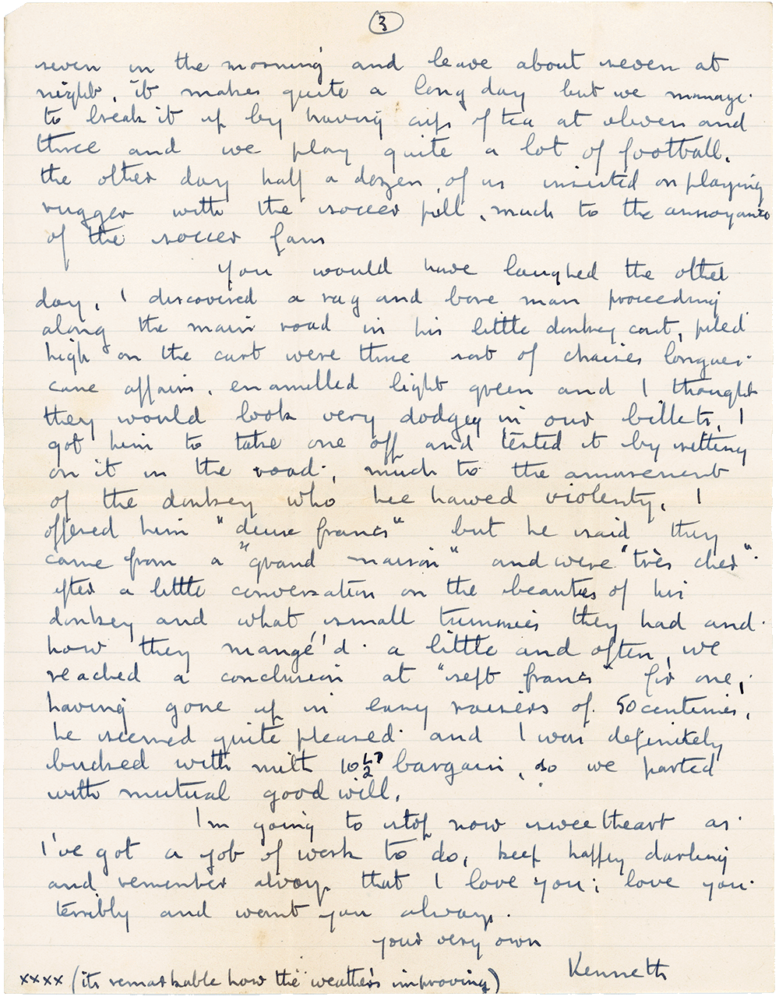 3
seven in the morning and leave about seven at
night, it makes quite a long day but we manage
to break it up by having cups of tea at eleven and
three and we play quite a lot of football,
the other day half a dozen, of us insisted on playing
rugger with the soccer pill, much to the annoyance
of the soccer fans
You would have laughed the other
day, I discovered a rag and bone man proceeding
along the main road in his little donkey cart, piled
high on the cart were three sort of chaises longues
cane affairs, enamelled light green and I thought
they would look very dodgey in our billets, I
got him to take one off and tested it by sitting
on it in the road, much to the amusement
of the donkey who hee hawed violenty, I
offered him "deux francs" but he said they
came from a "grand maison" and were "très cher".
after a little conversation on the beauties of his
donkey and what small tummies they had and
how they mangé'd a little and often, we
reached a conclusion at "sept francs" for one,
having gone up in easy raisers of 50 centimes,
he seemed quite pleased and I was definitely
bucked with my bargain, so we parted
with mutual good will.
I'm going to stop now sweetheart as
I've got a job of work to do, keep happy darling
and remember always that I love you; love you
terribly and want you always.
your very own
Kenneth
xxxx (its remarkable how the weather's improving)